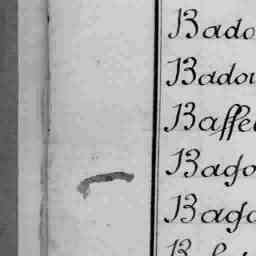 Bado
Badou
Baffe
Bago
Bago